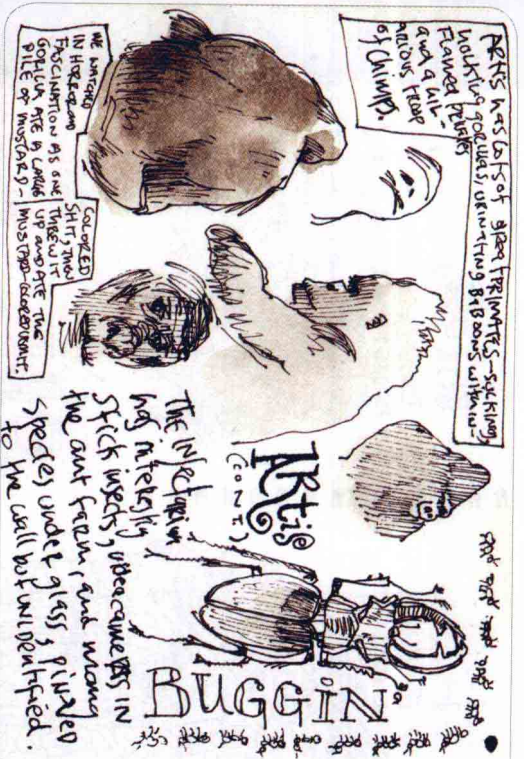 ARtis has lots of great PRIMATES-sucking,
hocking gorillas, urinating BABOONS with in-
flamed privates
and a hil-
arious troop
of Chimps.
WE WATCHED
IN HORROR AND
FASCINATION AS ONE
GORILLA ATE A LARGE
PILE OF MUSTARD-
COLORED
SHIT, THEN
THREW IT
UP AND ATE THE
MUSTARD-COLORED
ARtis
(CONT.)
The Insectarium
has
stick insects, video cameras in
the ant farm, and many
species under glass & pinned
to the wall but unidentified.
BUGGIN